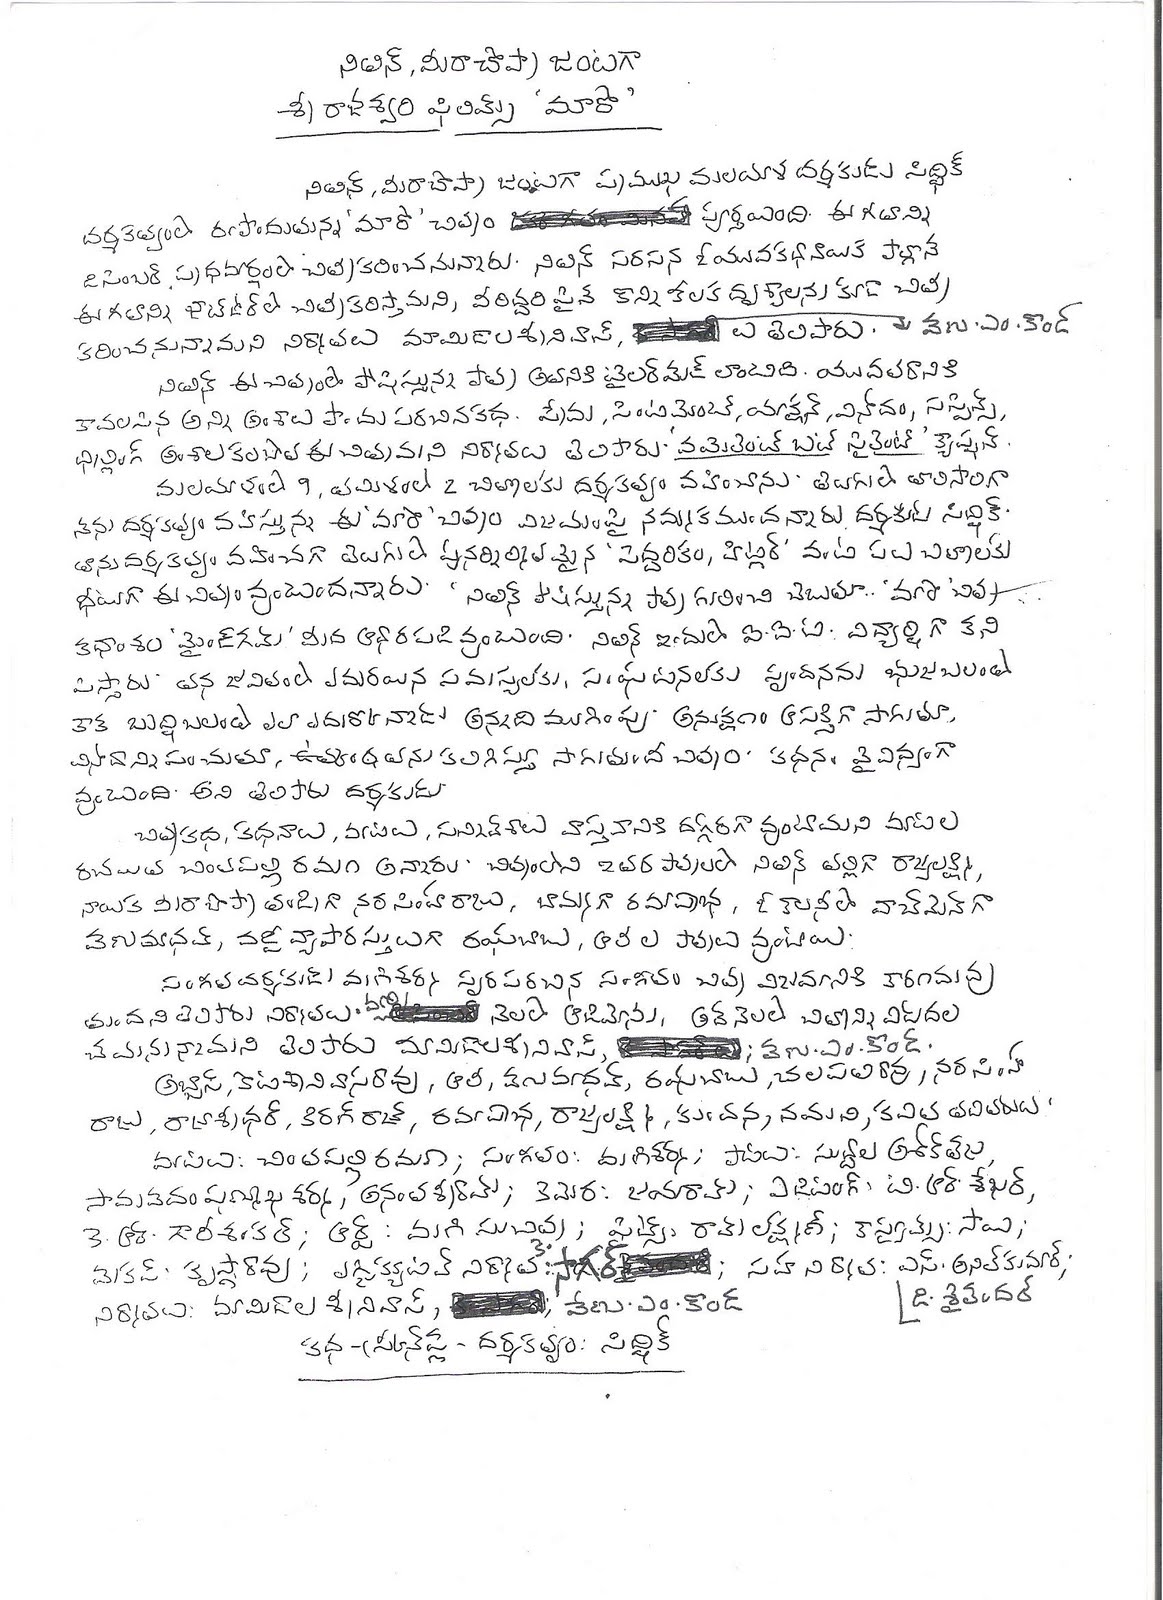 నితిన్, మీరాచోప్రా జంటగా
శ్రీ రాజేశ్వరి ఫిలిమ్స్ 'మారో'
నితిన్, మీరాచోప్రా జంటగా ప్రముఖ మలయాళ దర్శకుడు సిద్ధిక్
దర్శకత్వంలో రూపొందుతున్న 'మారో' చిత్రం పూర్తయింది. ఈ గీతాన్ని
డిసెంబర్ ప్రథమార్థంలో చిత్రీకరించనున్నారు. నితిన్ సరసన ఓ యువకథానాయిక పాల్గొనే
ఈ గీతాన్ని చిత్రీకరిస్తామని, వీరిద్దరి పైనే కొన్ని కీలక దృశ్యాలను కూడా చిత్రీ
కరించనున్నామని నిర్మాతలు మామిడాల శ్రీనివాస్, లు తెలిపారు. వేణు.ఎం.కొండ
నితిన్ ఈ చిత్రంలో పోషిస్తున్న పాత్ర అతనికి టైలర్‌మేడ్ లాంటిది. యువతరానికి
కావలసిన అన్ని అంశాలు పొందుపరచినకథ. ప్రేమ, సెంటిమెంట్, యాక్షన్, వినోదం, సస్పెన్స్,
థ్రిల్లింగ్ అంశాలకలబోత ఈ చిత్రమని నిర్మాతలు తెలిపారు. 'వయొలెంట్ బట్ సైలెంట్' క్యాప్షన్.
మలయాళంలో 9, తమిళంలో 2 చిత్రాలకు దర్శకత్వం వహించాను. తెలుగులో తొలిసారిగా
నేను దర్శకత్వం వహిస్తున్న ఈ 'మారో' చిత్రం విజయంపై నమ్మకముందన్నారు దర్శకుడు సిద్ధిక్.
తాను దర్శకత్వం వహించగా తెలుగులో పునర్నిర్మితమైన 'పెద్దరికం, హిట్లర్' వంటి పలు చిత్రాలకు
ధీటుగా ఈ చిత్రం వుంటుందన్నారు. నితిన్ పోషిస్తున్న పాత్ర గురించి చెబుతూ.. 'మారో' చిత్ర
కథాంశం 'మైండ్‌గేమ్' మీద ఆధారపడి వుంటుంది. నితిన్ ఇందులో ఐ.ఐ.టి. విద్యార్థిగా కని
పిస్తారు. తన జీవితంలో ఎదురయిన సమస్యలకు, సంఘటనలకు స్పందనను భుజబలంతో
కాక బుద్ధిబలంతో ఎలా ఎదుర్కొన్నాడు అన్నది ముగింపు. అనుక్షణం ఆసక్తిగా సాగుతూ,
వినోదాన్ని పంచుతూ, ఉత్కంఠతను కలిగిస్తూ సాగుతుందీ చిత్రం. కథనం వైవిధ్యంగా
వుంటుంది. అని తెలిపారు దర్శకుడు.
చిత్రకథ, కథనాలు, మాటలు, సన్నివేశాలు వాస్తవానికి దగ్గరగా వుంటాయని మాటల
రచయిత చింతపల్లి రమణ అన్నారు. చిత్రంలోని ఇతర పాత్రలలో నితిన్ తల్లిగా రాజ్యలక్ష్మి,
నాయిక మీరాచోప్రా తండ్రిగా నరసింహరాజు, బామ్మగా రమాప్రభ, ఓ కాలనీలో వాచ్‌మెన్‌గా
వేణుమాధవ్, వడ్డీ వ్యాపారస్తులుగా రఘుబాబు, ఆలీ ల పాత్రలు వుంటాయి.
సంగీత దర్శకుడు మణిశర్మ స్వరపరచిన సంగీతం చిత్ర విజయానికి కారణమవు
తుందని తెలిపారు నిర్మాతలు. నెలలో ఆడియోను, అదే నెలలో చిత్రాన్ని విడుదల
చేయనున్నామని తెలిపారు మామిడాల శ్రీనివాస్, ; వేణు.ఎం.కొండ.
అబ్బాస్, కోటశ్రీనివాసరావు, ఆలీ, వేణుమాధవ్, రఘుబాబు, చలపతిరావు, నరసింహ
రాజు, రాజాశ్రీధర్, కిరణ్ రాజ్, రమాప్రభ, రాజ్యలక్ష్మి, కుందన, నయని, కవిత తదితరులు.
మాటలు: చింతపల్లి రమణ; సంగీతం: మణిశర్మ; పాటలు: సుద్దాల అశోక్‌తేజ,
సామవేదం షణ్ముఖ శర్మ, అనంత శ్రీరామ్; కెమెరా: జయరామ్; ఎడిటింగ్: టి.ఆర్. శేఖర్,
కె.ఆర్. గౌరీశంకర్; ఆర్ట్: మణి సుచిత్ర; ఫైట్స్: రామ్ లక్ష్మణ్; కాస్ట్యూమ్స్: సాయి;
మేకప్: కృష్ణారావు; ఎగ్జిక్యూటివ్ నిర్మాత: కె. సాగర్; సహ నిర్మాత: ఎస్. అనిల్‌కుమార్;
డి. శైలేందర్
నిర్మాతలు: మామిడాల శ్రీనివాస్, ; వేణు.ఎం.కొండ
కథ-స్క్రీన్‌ప్లే-దర్శకత్వం: సిద్ధిక్